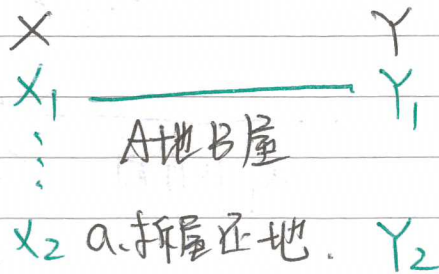 X Y
X1 Y1
A地B屋
X2 a.拆屋还地. Y2